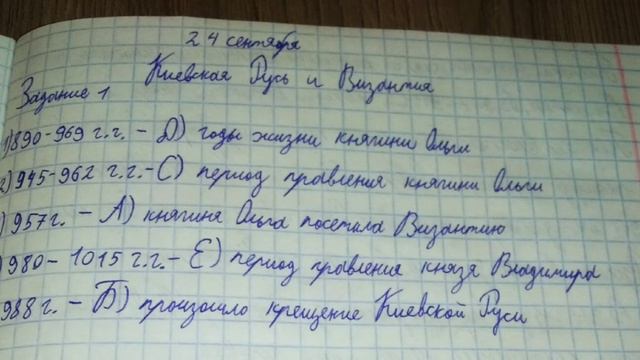 24 сентября
Киевская Русь и Византия
Задание 1
1) 890-969 г.г. - D) годы жизни княгини Ольги
2) 945-962 г.г. - С) период правления княгини Ольги
) 957г. - А) княгиня Ольга посетила Византию
) 980 - 1015 г.г. - Е) период правления князя Владимира
988 г. - Б) произошло крещение Киевской Руси